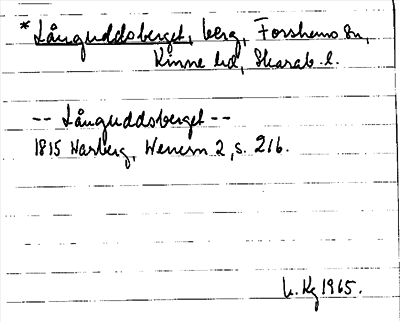 * Långuddsberget, berg, Forshems sn,
Kinne hd, Skarab. l.
-- Långuddsberget --
1815 Warberg, Wenern 2, s. 216.
L. Kg 1965.